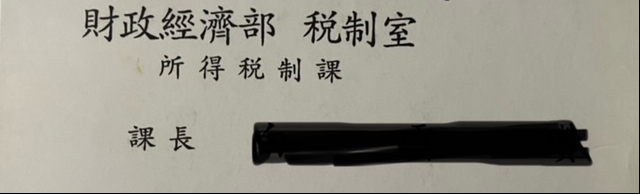 財政經濟部 税制室
所得税制課
課長